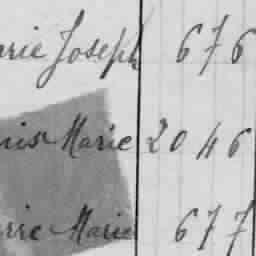 arie Joseph 676
uis Marie 2046
erre Marie 677